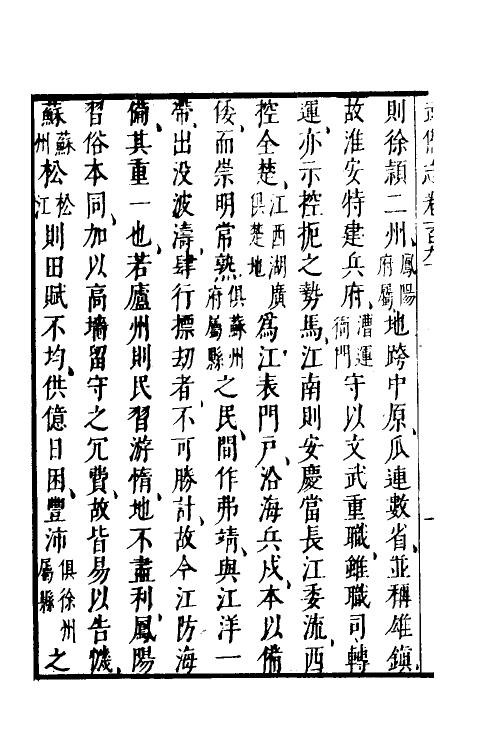 則徐潁二州鳳陽府屬地跨中原、瓜連數省、並稱雄鎮、
故淮安特建兵府、漕運衙門守以文武重職、雖職司轉
運、亦示控扼之勢焉、江南則安慶當長江委流、西
控全楚、江西湖廣俱楚地為江表門戶、沿海兵戍、本以備
倭、而崇明常熟俱蘇州府屬縣之民、間作弗靖、與江洋一
帶、出没波濤、肆行摽劫者、不可勝計、故今江防海
備、其重一也、若廬州則民習游惰、地不盡利、鳳陽
習俗本同、加以高墻留守之冗費、故皆易以告饑、
蘇蘇州松松江則田賦不均、供億日困、豐沛俱徐州屬縣之